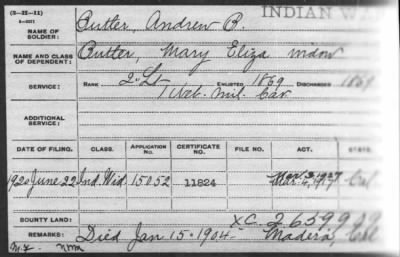 (3-III-11)
INDIAN WA
NAME OF SOLDIER: Butler, Andrew B.
NAME AND CLASS OF DEPENDENT: Butler, Mary Eliza widow
SERVICE: RANK 2" Lt ENLISTED 1869 DISCHARGED 1869
1 Neb. Mil. Cav
ADDITIONAL SERVICE:
DATE OF FILING. CLASS. APPLICATION No. CERTIFICATE No. FILE NO. ACT. STATE.
1920 June 22 Ind. Wid. 15052 11824 Mar. 4, 1917 Cal
BOUNTY LAND: XC 2659909
REMARKS: Died Jan 15-1904- Madera, Cal